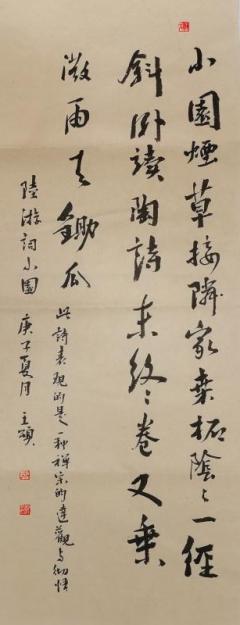 小園煙草接隣家桒柘陰〻一徑
斜卧讀陶詩未終〻卷又乗
微雨去鋤瓜
此詩表現的是一种禅宗的達觀与彻悟
陸游詞小園
庚子夏月王頌